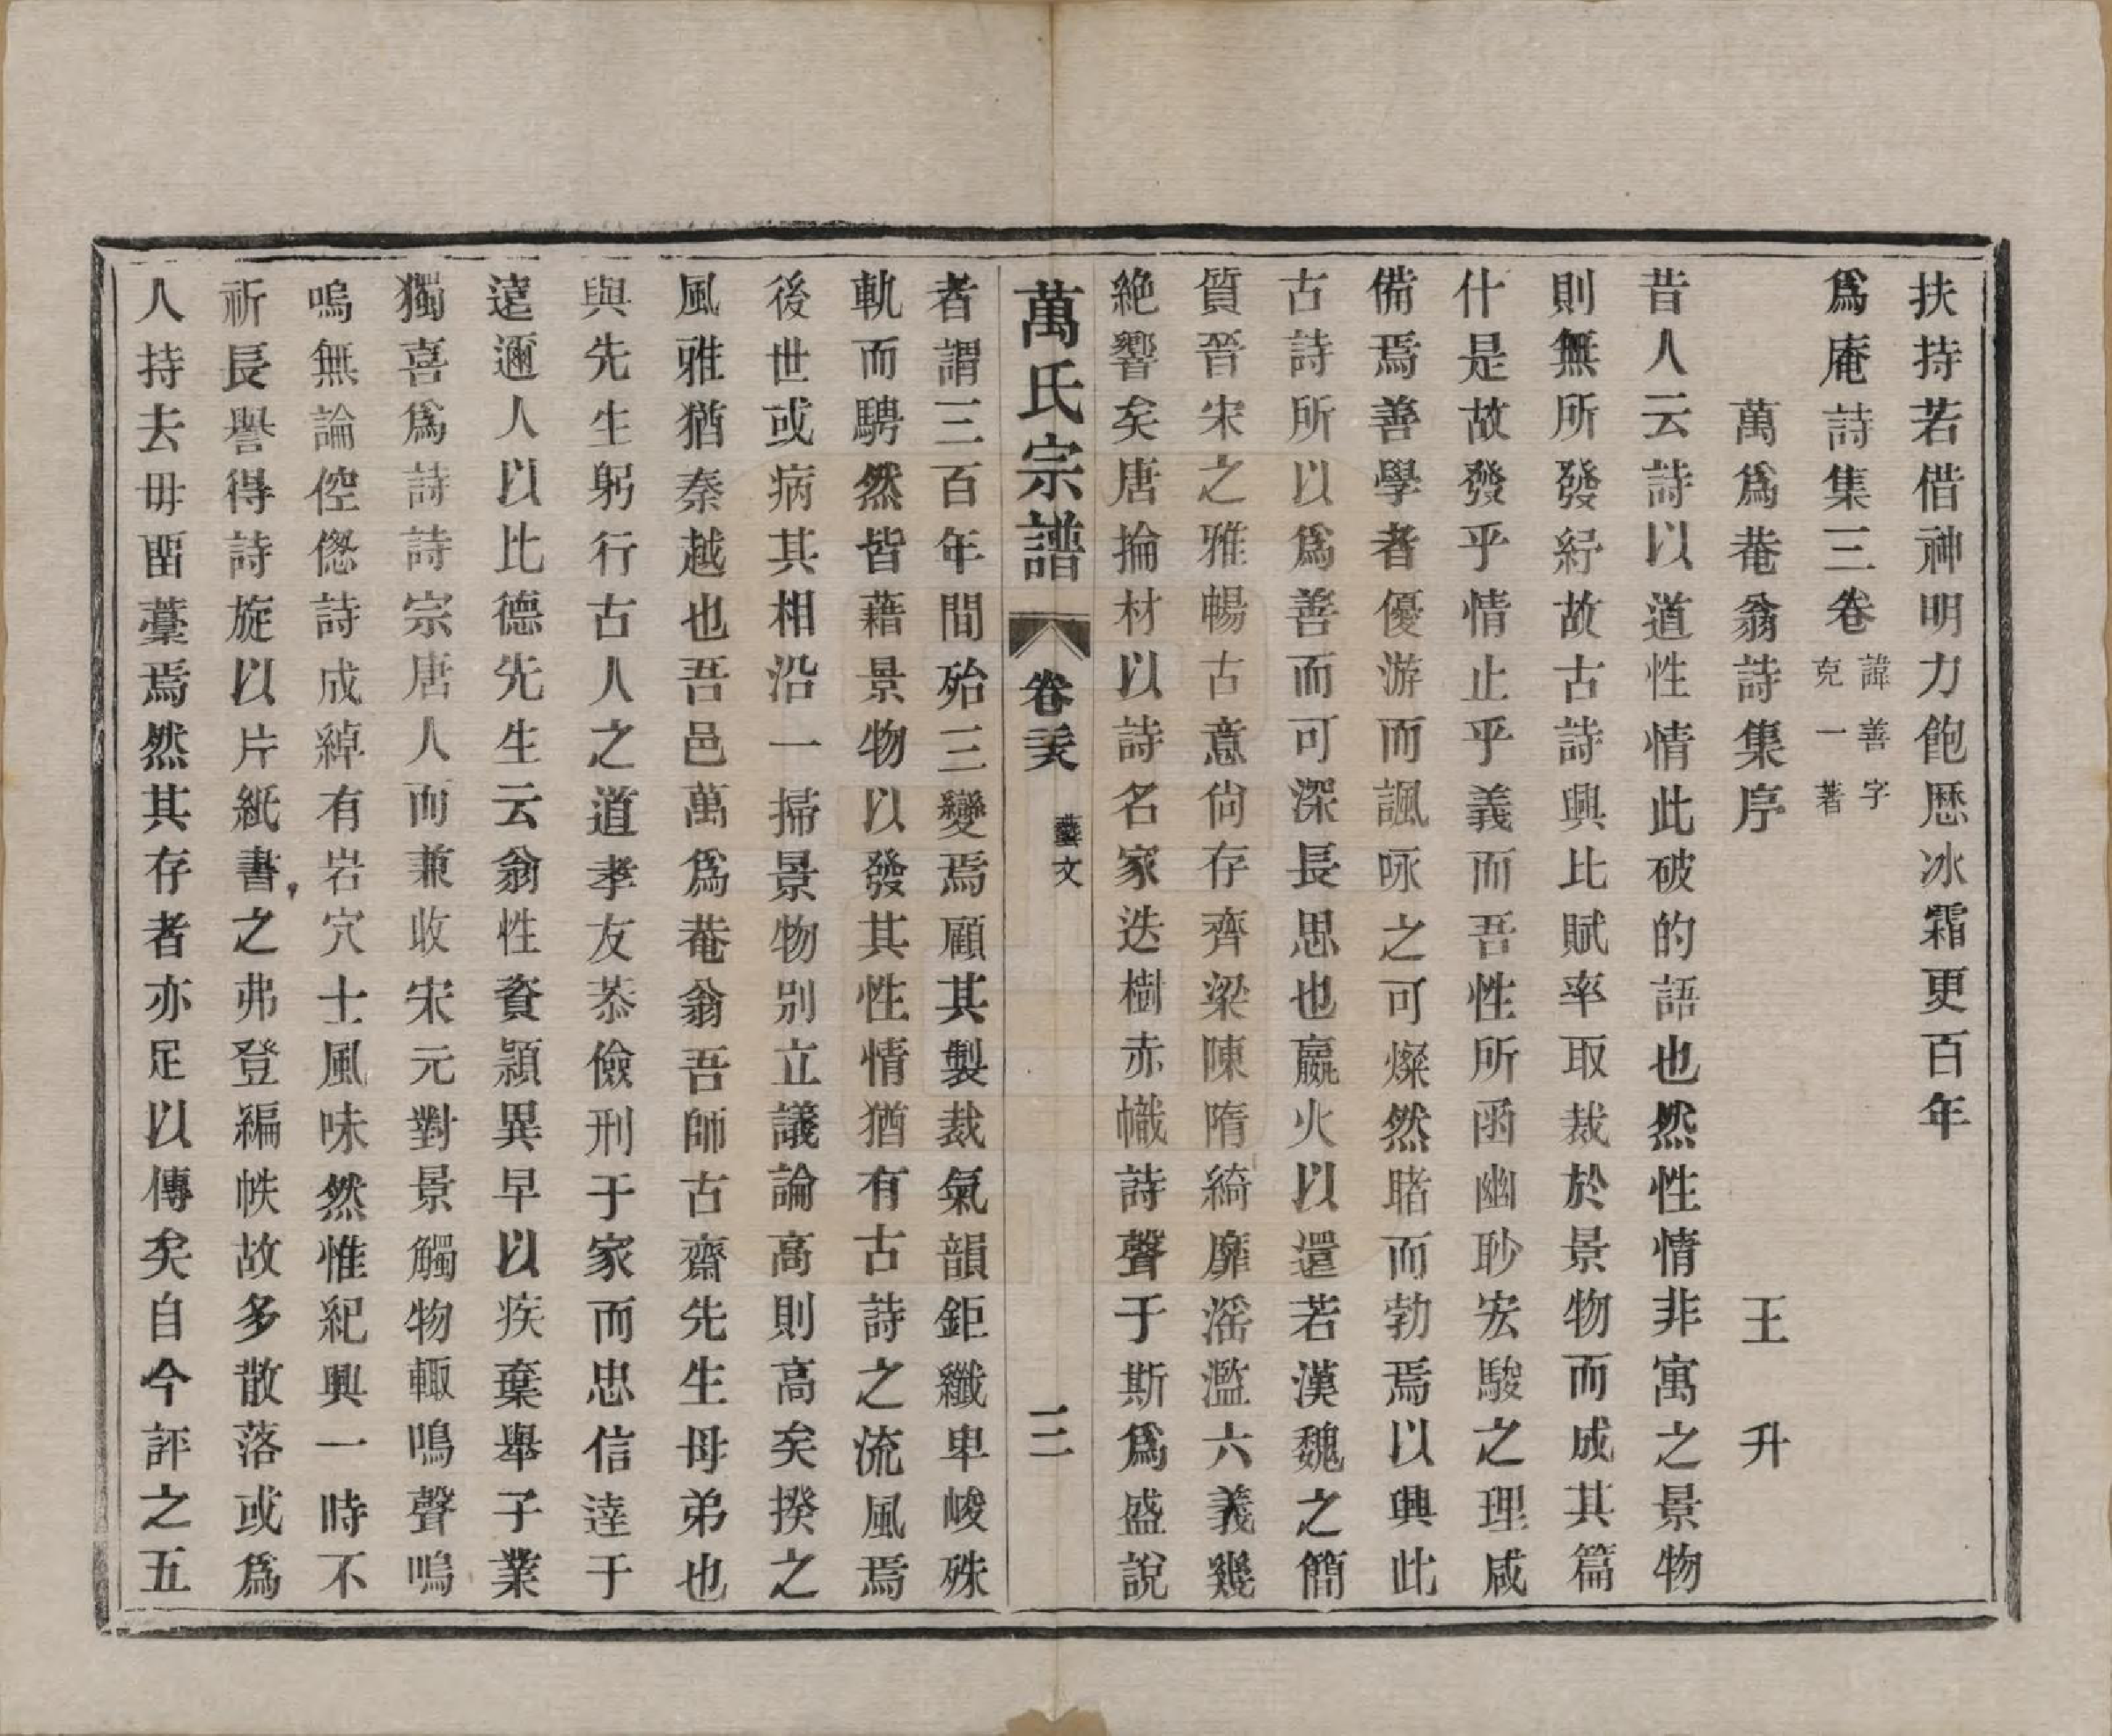 扶持若借神明力飽歷冰霜更百年
爲庵詩集三卷諱善字克一著
萬爲菴翁詩集序 王升
昔人云詩以道性情此破的語也然性情非寓之景物
則無所發紓故古詩興比賦率取裁於景物而成其篇
什是故發乎情止乎義而吾性所函幽眇宏駿之理咸
備焉善學者優游而諷咏之可燦然睹而勃焉以興此
古詩所以爲善而可深長思也嬴火以還若漢魏之簡
質晉宋之雅暢古意尙存齊梁陳隋綺靡滛濫六義幾
絶響矣唐掄材以詩名家迭樹赤幟詩聲于斯爲盛說
萬氏宗譜 卷三六 藝文 三
者謂三百年間殆三變焉顧其製裁氣韻鉅纖卑峻殊
軌而騁然皆藉景物以發其性情猶有古詩之流風焉
後世或病其相沿一掃景物別立議論高則高矣揆之
風雅猶秦越也吾邑萬爲菴翁吾師古齋先生母弟也
與先生躬行古人之道孝友恭儉刑于家而忠信逹于
遠邇人以比德先生云翁性資頴異早以疾棄舉子業
獨喜爲詩詩宗唐人而兼收宋元對景觸物輙鳴聲嗚
嗚無論倥偬詩成綽有岩穴士風味然惟紀興一時不
祈長譽得詩旋以片紙書之弗登編帙故多散落或爲
人持去毋畱藁焉然其存者亦足以傳矣自今評之五